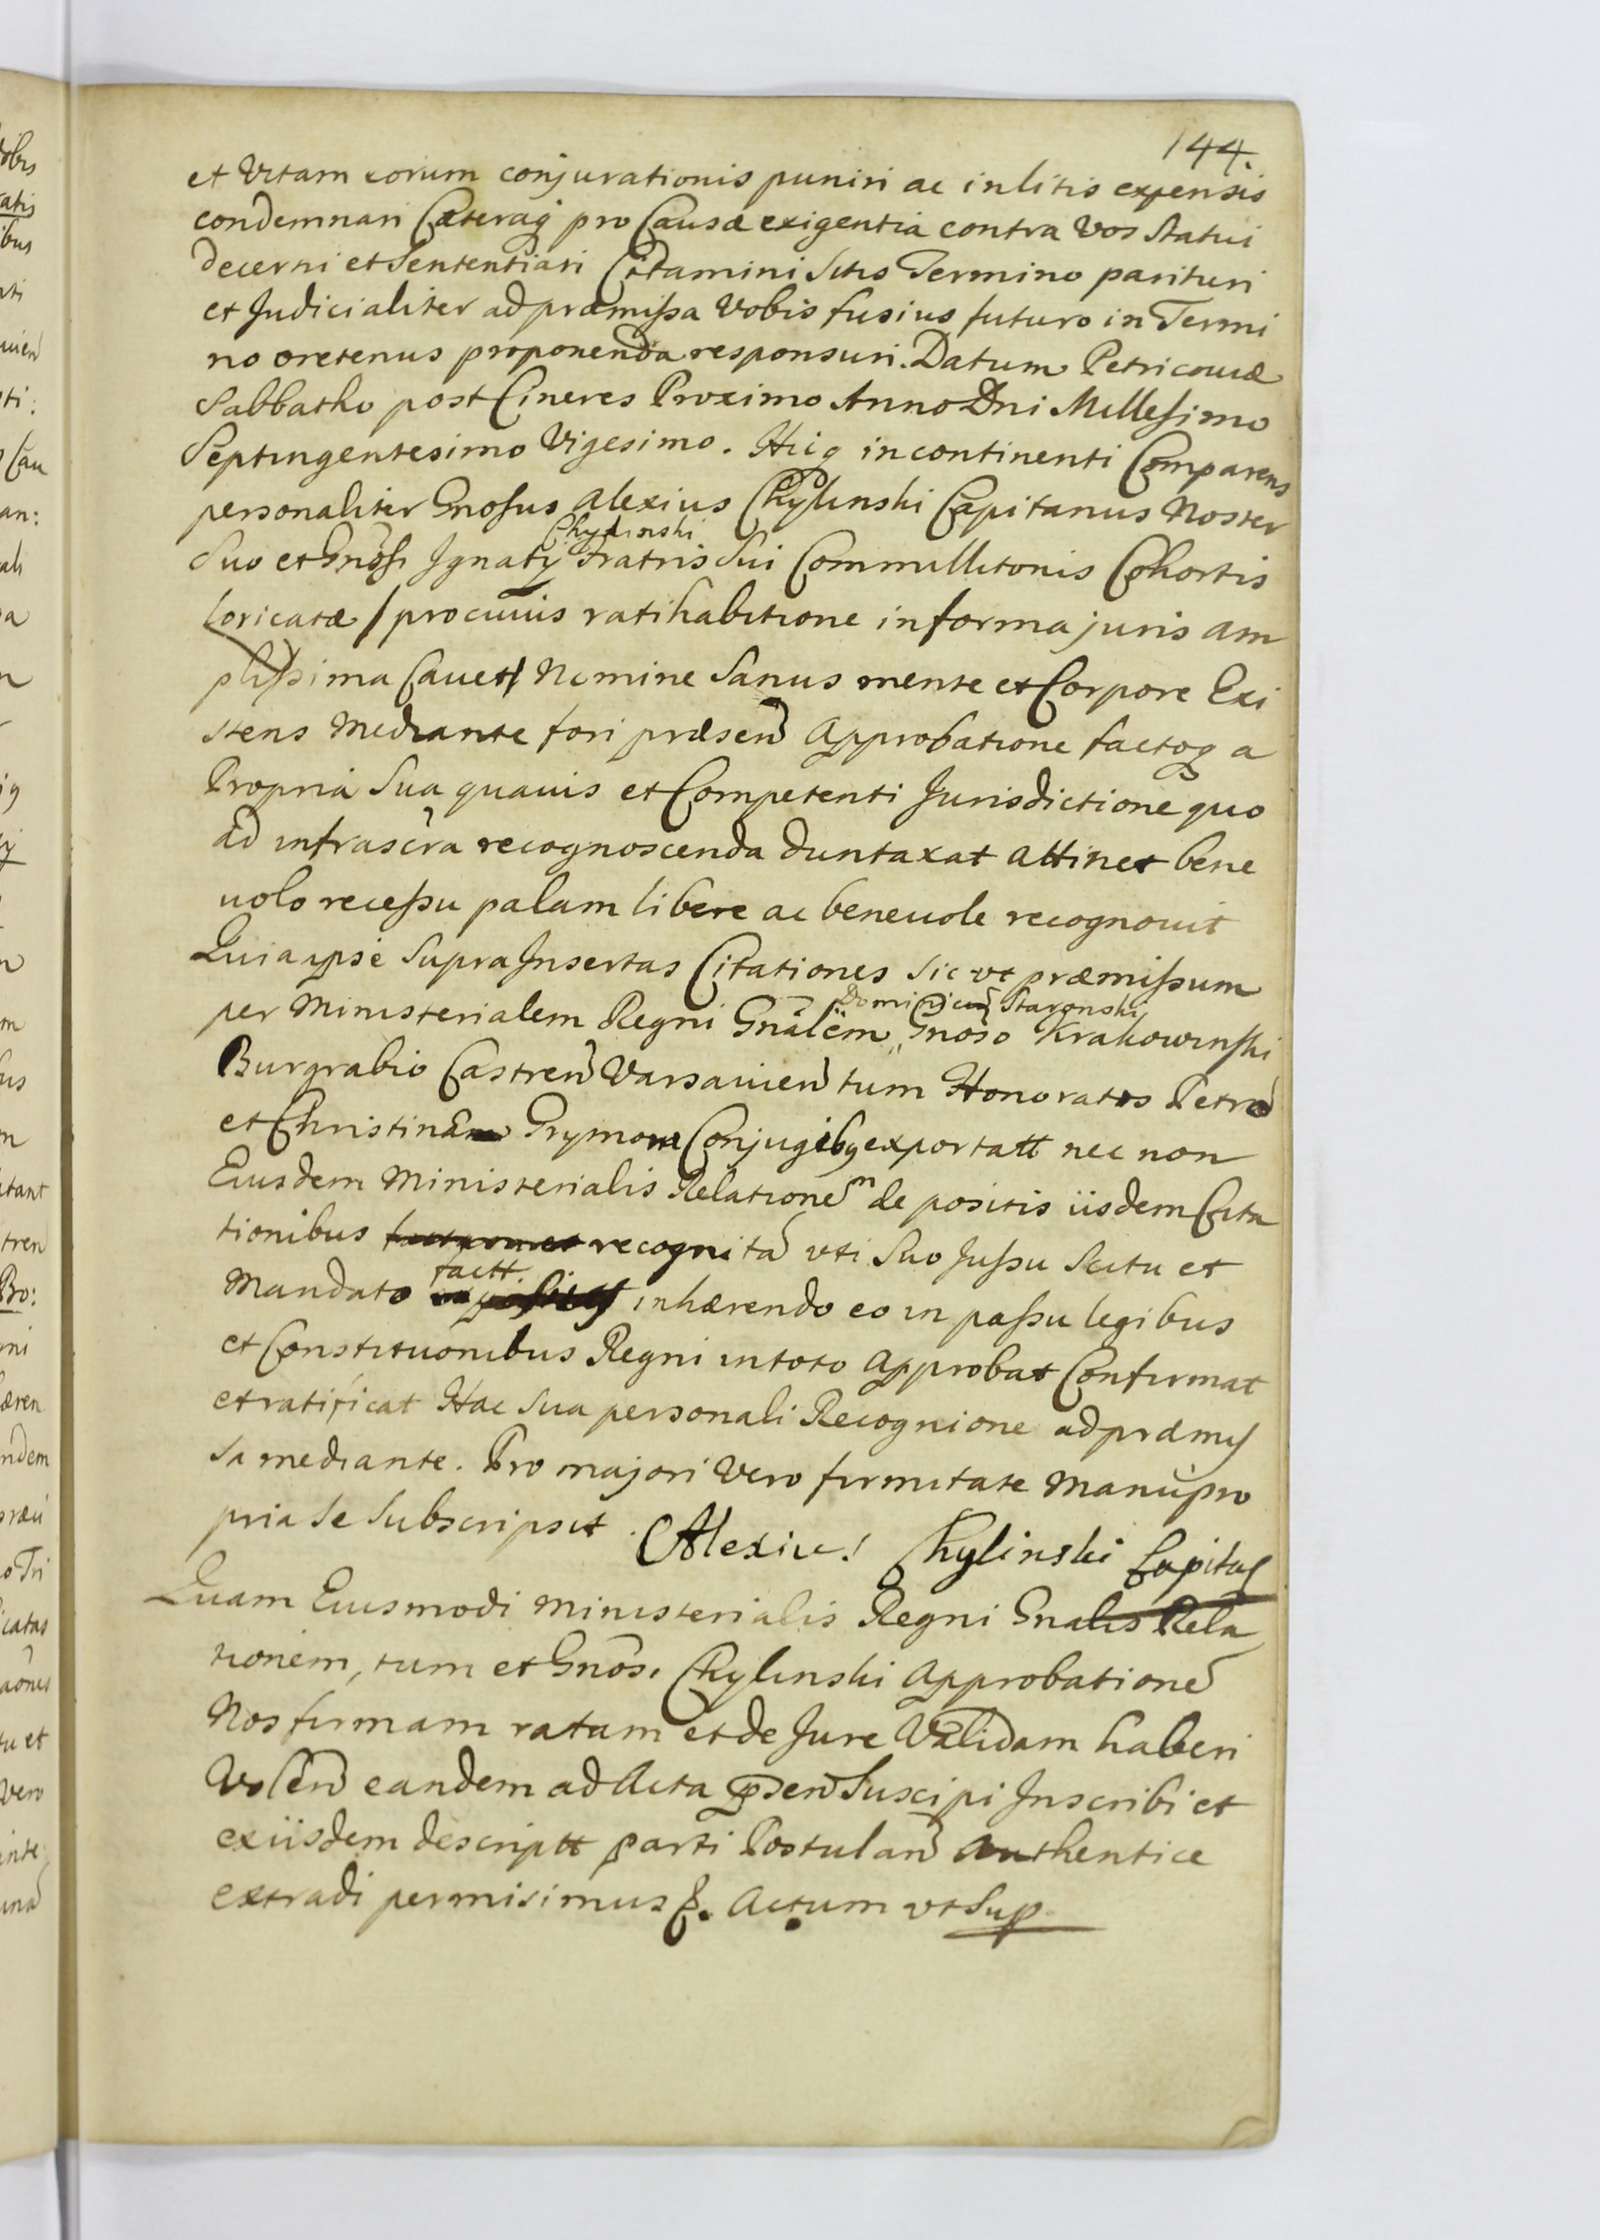 144.
et Vitam eorum conjurationis puniri ac in litis expensis
condemnari Cæteraq pro Causæ exigentia contra Vos Statui
decerni et Sententiari Citamini Sitis Termino parituri
et Judicialiter ad præmissa Vobis fusius futuro in Termi
no oretenus proponenda responsuri. Datum Petricoviæ
Sabbatho post Cineres Proximo Anno Dni Millesimo
Septingentesimo Vigesimo. Hicq incontinenti Comparens
personaliter Gnosus Alexius Chylinski Capitanus Noster
Chylinski
Suo et Gnosi Ignaty Fratris Sui Commillitonis Cohortis
Loricatæ / pro cuius ratihabitione in forma juris am
plissima Cavet / Nomine Sanus mente et Corpore Exi
stens Mediante fori præsen Approbatione factoq a
Propria Sua quavis et Competenti Jurisdictione quo
ad infrascra recognoscenda duntaxat attinet bene
volo recessu palam libere ac benevole recognovit
Quia ipse Supra Insertas Citationes Sic ut præmissum
Dominicum Staronski
per Ministerialem Regni Gnãlem Gnoso Krakowinski
Burgrabio Castren Varsavien tum Honoratos Petro
et Christina Grymom Conjugibq exportatt nec non
Eiusdem Ministerialis Relationem de positis iisdem Cita
tionibus recognitã uti Suo Jussu Scitu et
factt.
Mandato inhærendo eo in passu legibus
et Constitutionibus Regni in toto Approbat Confirmat
et ratificat Hac Sua personali Recognione ad præmis
sa mediante. Pro majori Vero firmitate Manu pro
pria Se Subscripsit. Alexius Chylinski Capitas
Quam Eiusmodi Ministerialis Regni Gnalis Rela
tionem, tum et Gnosi Chylinski Approbatione
Nos firmam ratam et de Jure Validam haberi
Volen eandem ad Acta psen Suscipi Inscribi et
ex iisdem descriptt parti Postulan authentice
extradi permisimus. Actum ut Sup